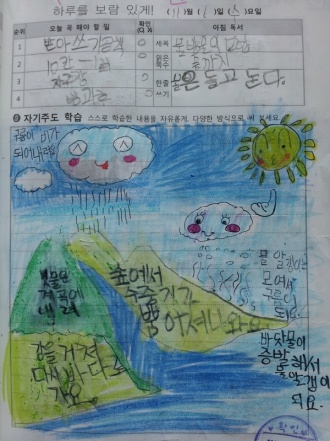 하루를 보람 있게! ( 11 )월 ( )일 ( )요일
순위 오늘 꼭 해야 할 일 확인 아침 독서
1 받아쓰기공책 제목 물방울의
2 읽은 쪽수 끝까지
3 한줄 물은 돌고 돈다.
4 쓰기
자기주도 학습 스스로 학습한 내용을 자유롭게, 다양한 방식으로 써 보세요.
구름이 비가
되어내려요
물 알갱이는
모여서
구름이
돼요.
바닷물이
증발해서
물알갱이
되요.
빗물은
계곡에
내려
숲에서
물줄기가
뿜어져나와요
강을 거쳐
다시 바다로
가요.
확인